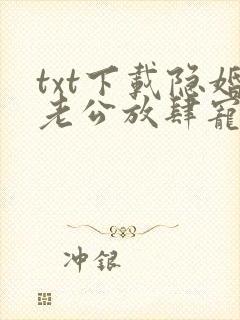 txt下载隐婚
老公放肆寵
冲银